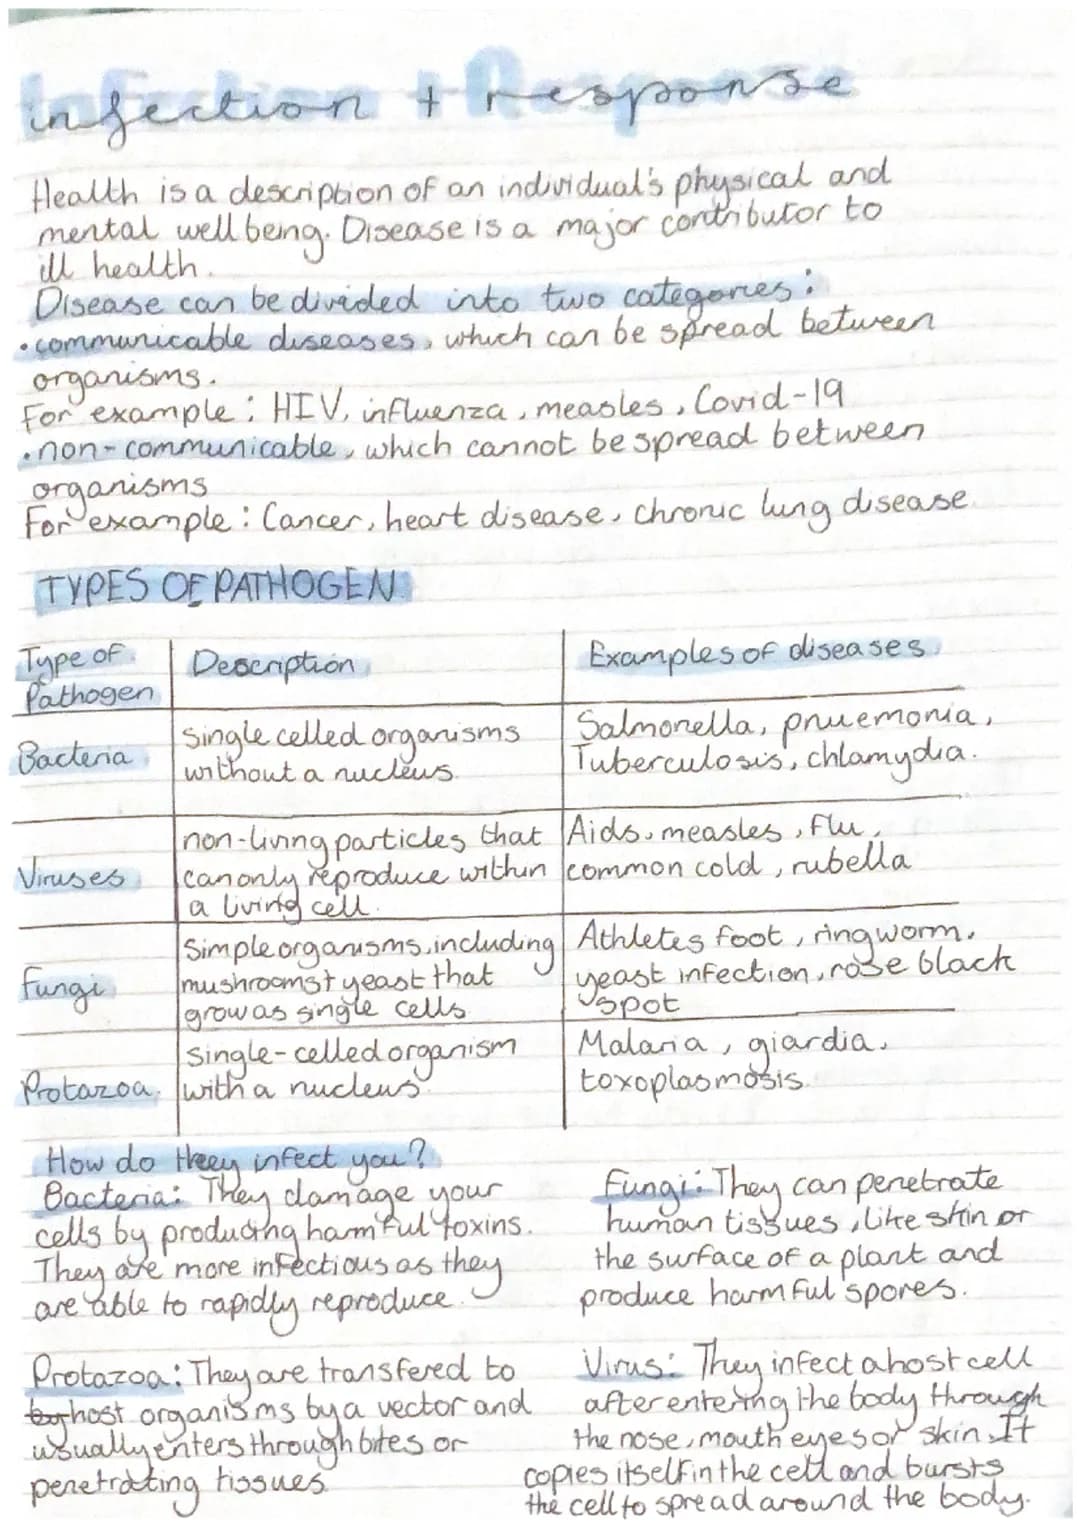 Infection + Response
Health is a description of an individual's physical and
mental well being. Disease is a major contributor to
ill health.
Disease can be divided into two categories:
• communicable diseases, which can be spread between
organisms.
For example: HIV, influenza, measles, Covid-19
• non-communicable, which cannot be spread between
organisms
For example: Cancer, heart disease, chronic lung disease.
TYPES OF PATHOGEN
Type of Pathogen | Description | Examples of diseases
Bacteria | Single celled organisms | Salmonella, pnuemonia,
without a nucleus. | Tuberculosis, chlamydia.
non-living particles that | Aids, measles, flu,
Viruses | can only reproduce within | common cold, rubella
a living cell.
Simple organisms, including | Athletes foot, ringworm,
Fungi | mushrooms + yeast that | yeast infection, rose black
grow as single cells | spot
Single-celled organism | Malaria, giardia,
Protazoa. | with a nucleus. | toxoplasmosis.
How do they infect you?
Bacteria: They damage your
cells by producing harmful toxins.
They are more infectious as they
are able to rapidly reproduce.
Fungi: They can penetrate
human tissues, like skin or
the surface of a plant and
produce harmful spores.
Protazoa: They are transfered to
by host organisms by a vector and
usually enters through bites or
penetrating tissues.
Virus: They infect a host cell
after entering the body through
the nose, mouth eyes or skin. It
copies itself in the cell and bursts
the cell to spread around the body.